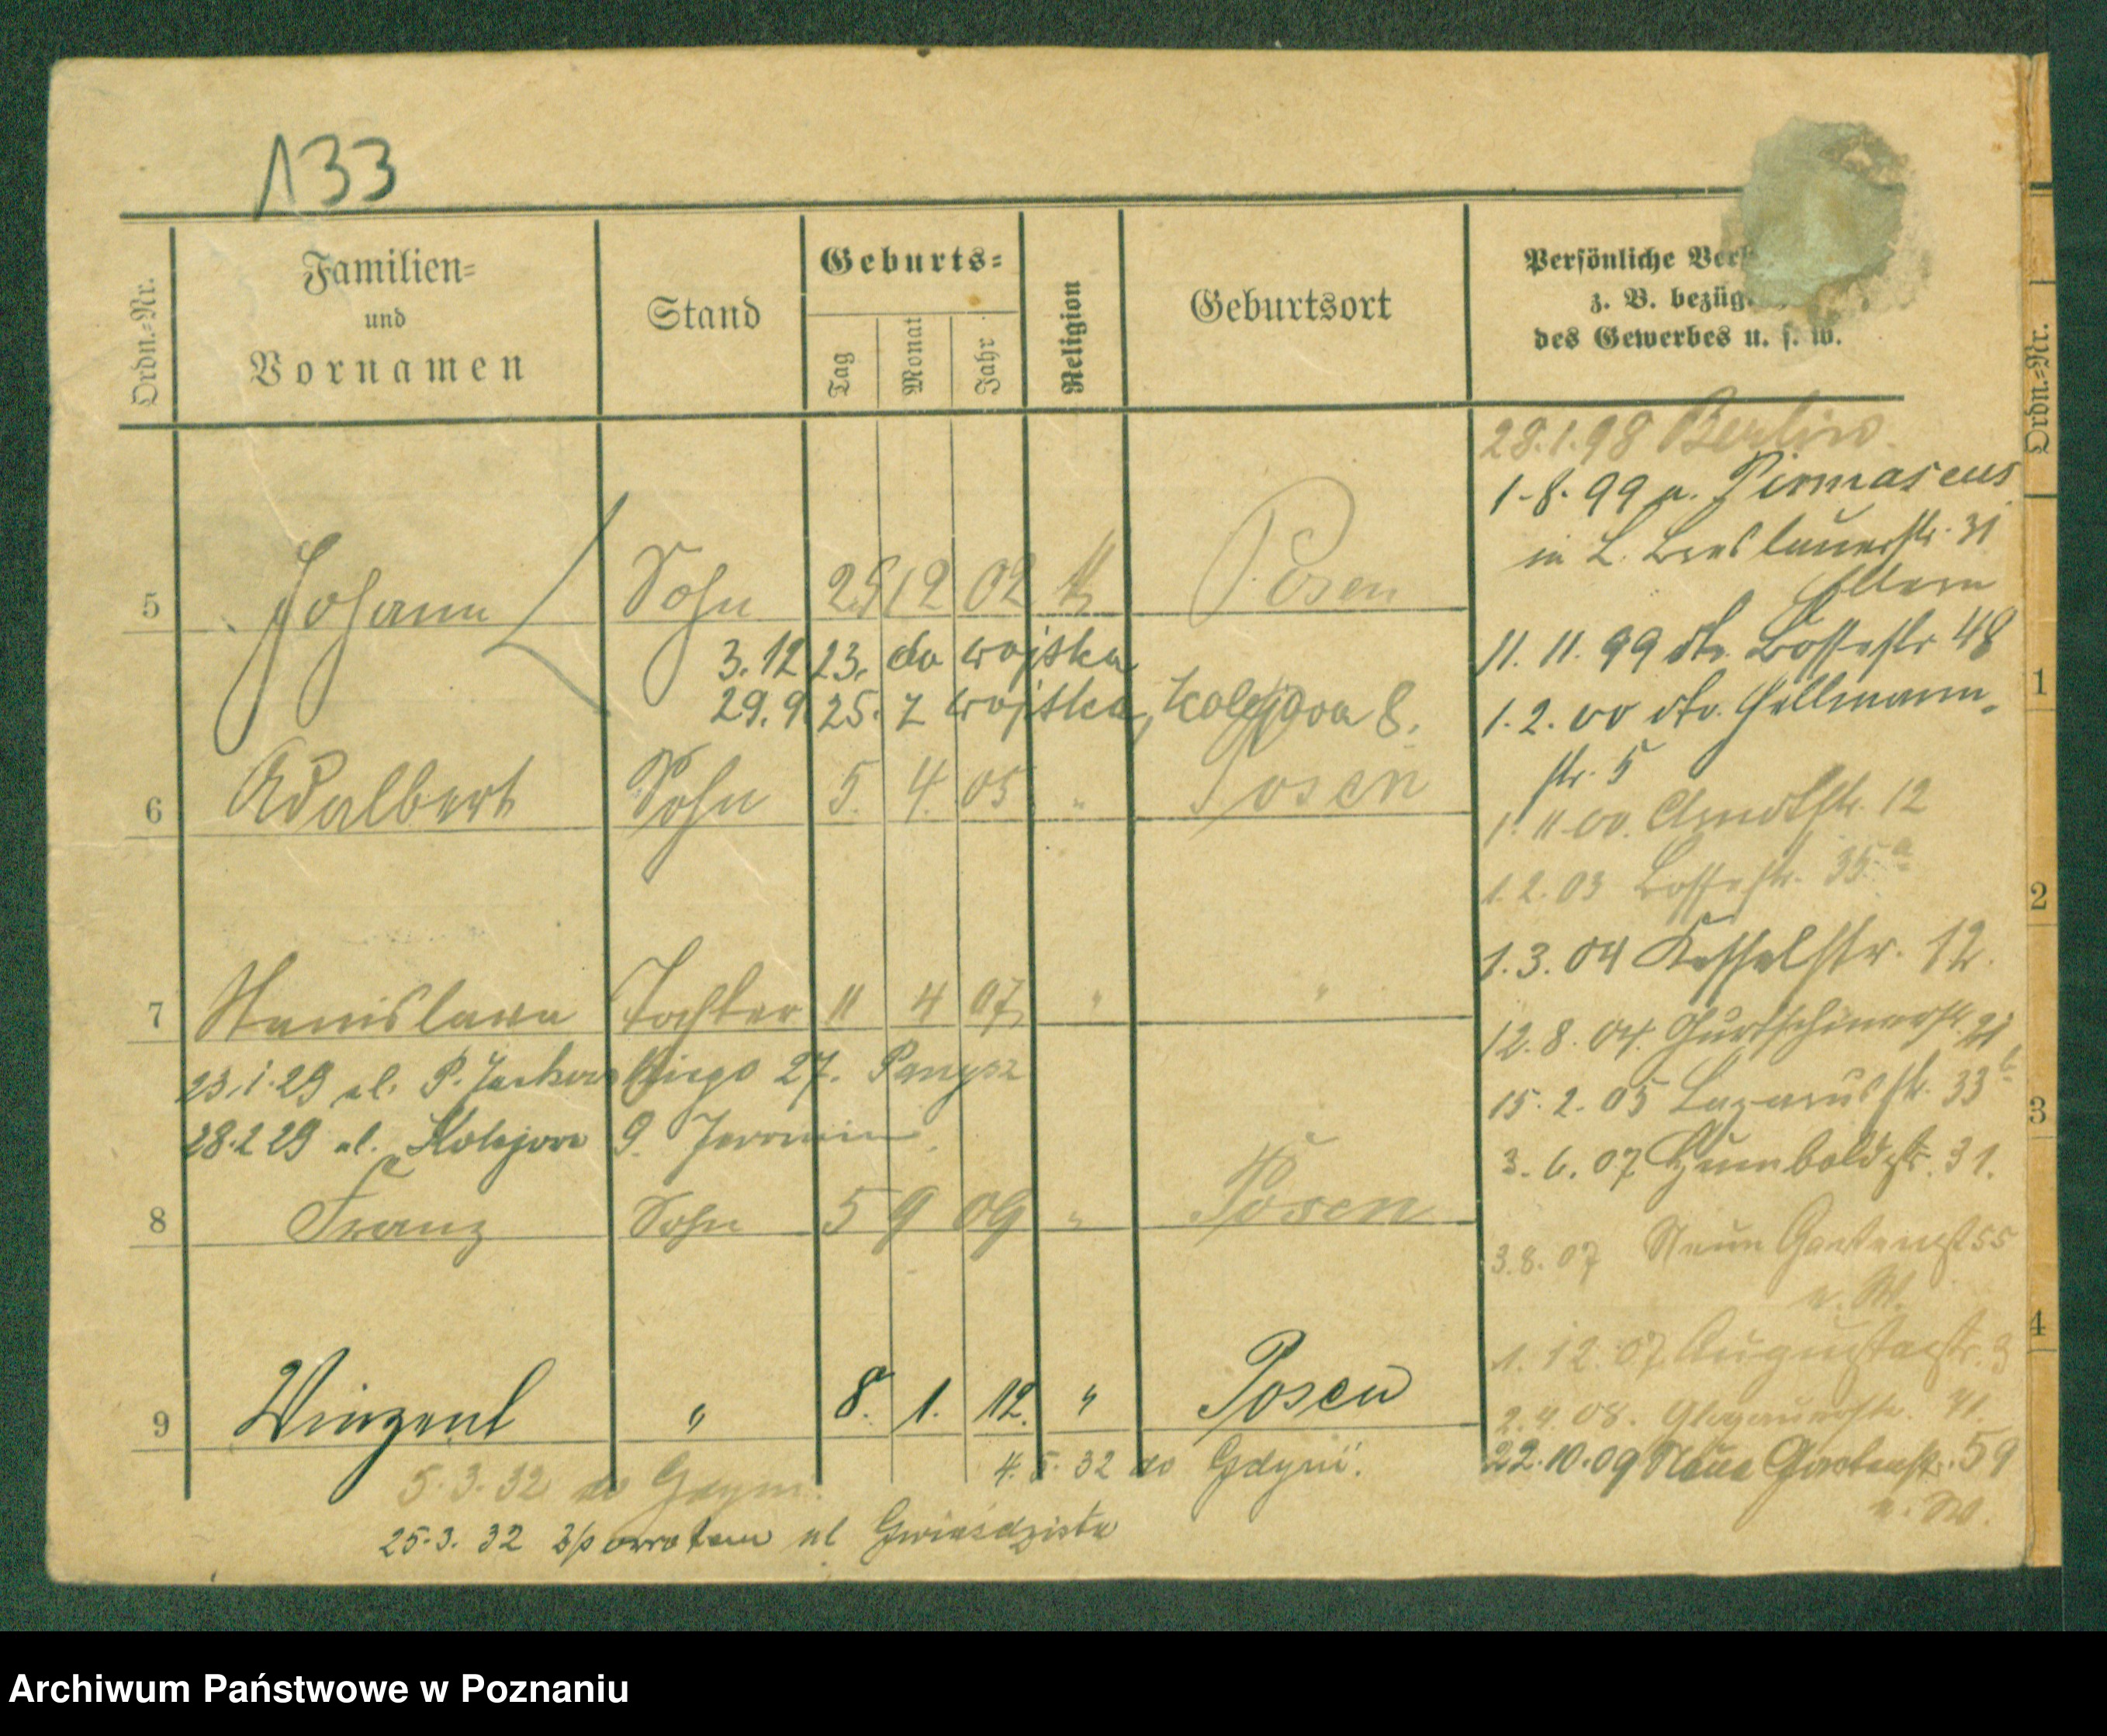 133
Ordn.=Nr.
Familien=
und
Vornamen
Stand
Geburts=
Tag
Monat
Jahr
Religion
Geburtsort
Persönliche
z. B. bezüg
des Gewerbes u. s. w.
5 Johann Sohn 25 12 02 k Posen
3.12.23. do wojska
29.9.25. z wojska, Kolejowa 8.
6 Adalbert Sohn 5. 4. 05 " Posen
7 Stanislawa Tochter 11 4 07 " "
23.1.29 ul. P. 27.
28.2.29 ul. Kolejowa 9.
8 Franz Sohn 5 9 09 " Posen
9 Winzent " 8. 1. 12. " Posen
4. 5. 32 do Gdyni.
5.3.32 do Gdyni.
25.3.32 z powrotem ul Gwiaździsta
28.1.98 Berlin.
1.8.99 a. Pirmasens
in L. Breslauerstr. 31
Eltern
11.11.99 dto. Bossestr 48
1.2.00 dto. Hellmann-
str. 5
1.11.00. Arndtstr. 12
1.2.03 Bossestr. 35a
1.3.04 Kesselstr. 12.
12.8.04. Gurtschinerstr. 21
15.2.05 Lazarusstr. 33
3.6.07 Humboldtstr. 31.
3.8.07 Neue Gartenst 55
n. W.
1.12.07 Augustastr. 3
2.4.08. Glogauerstr. 71.
22.10.09 Neue Gartenstr. 59
n. W.
Ordn.=Nr.
1
2
3
4
Archiwum Państwowe w Poznaniu